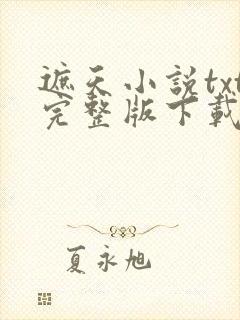 遮天小説txt
完整版下載
夏永旭